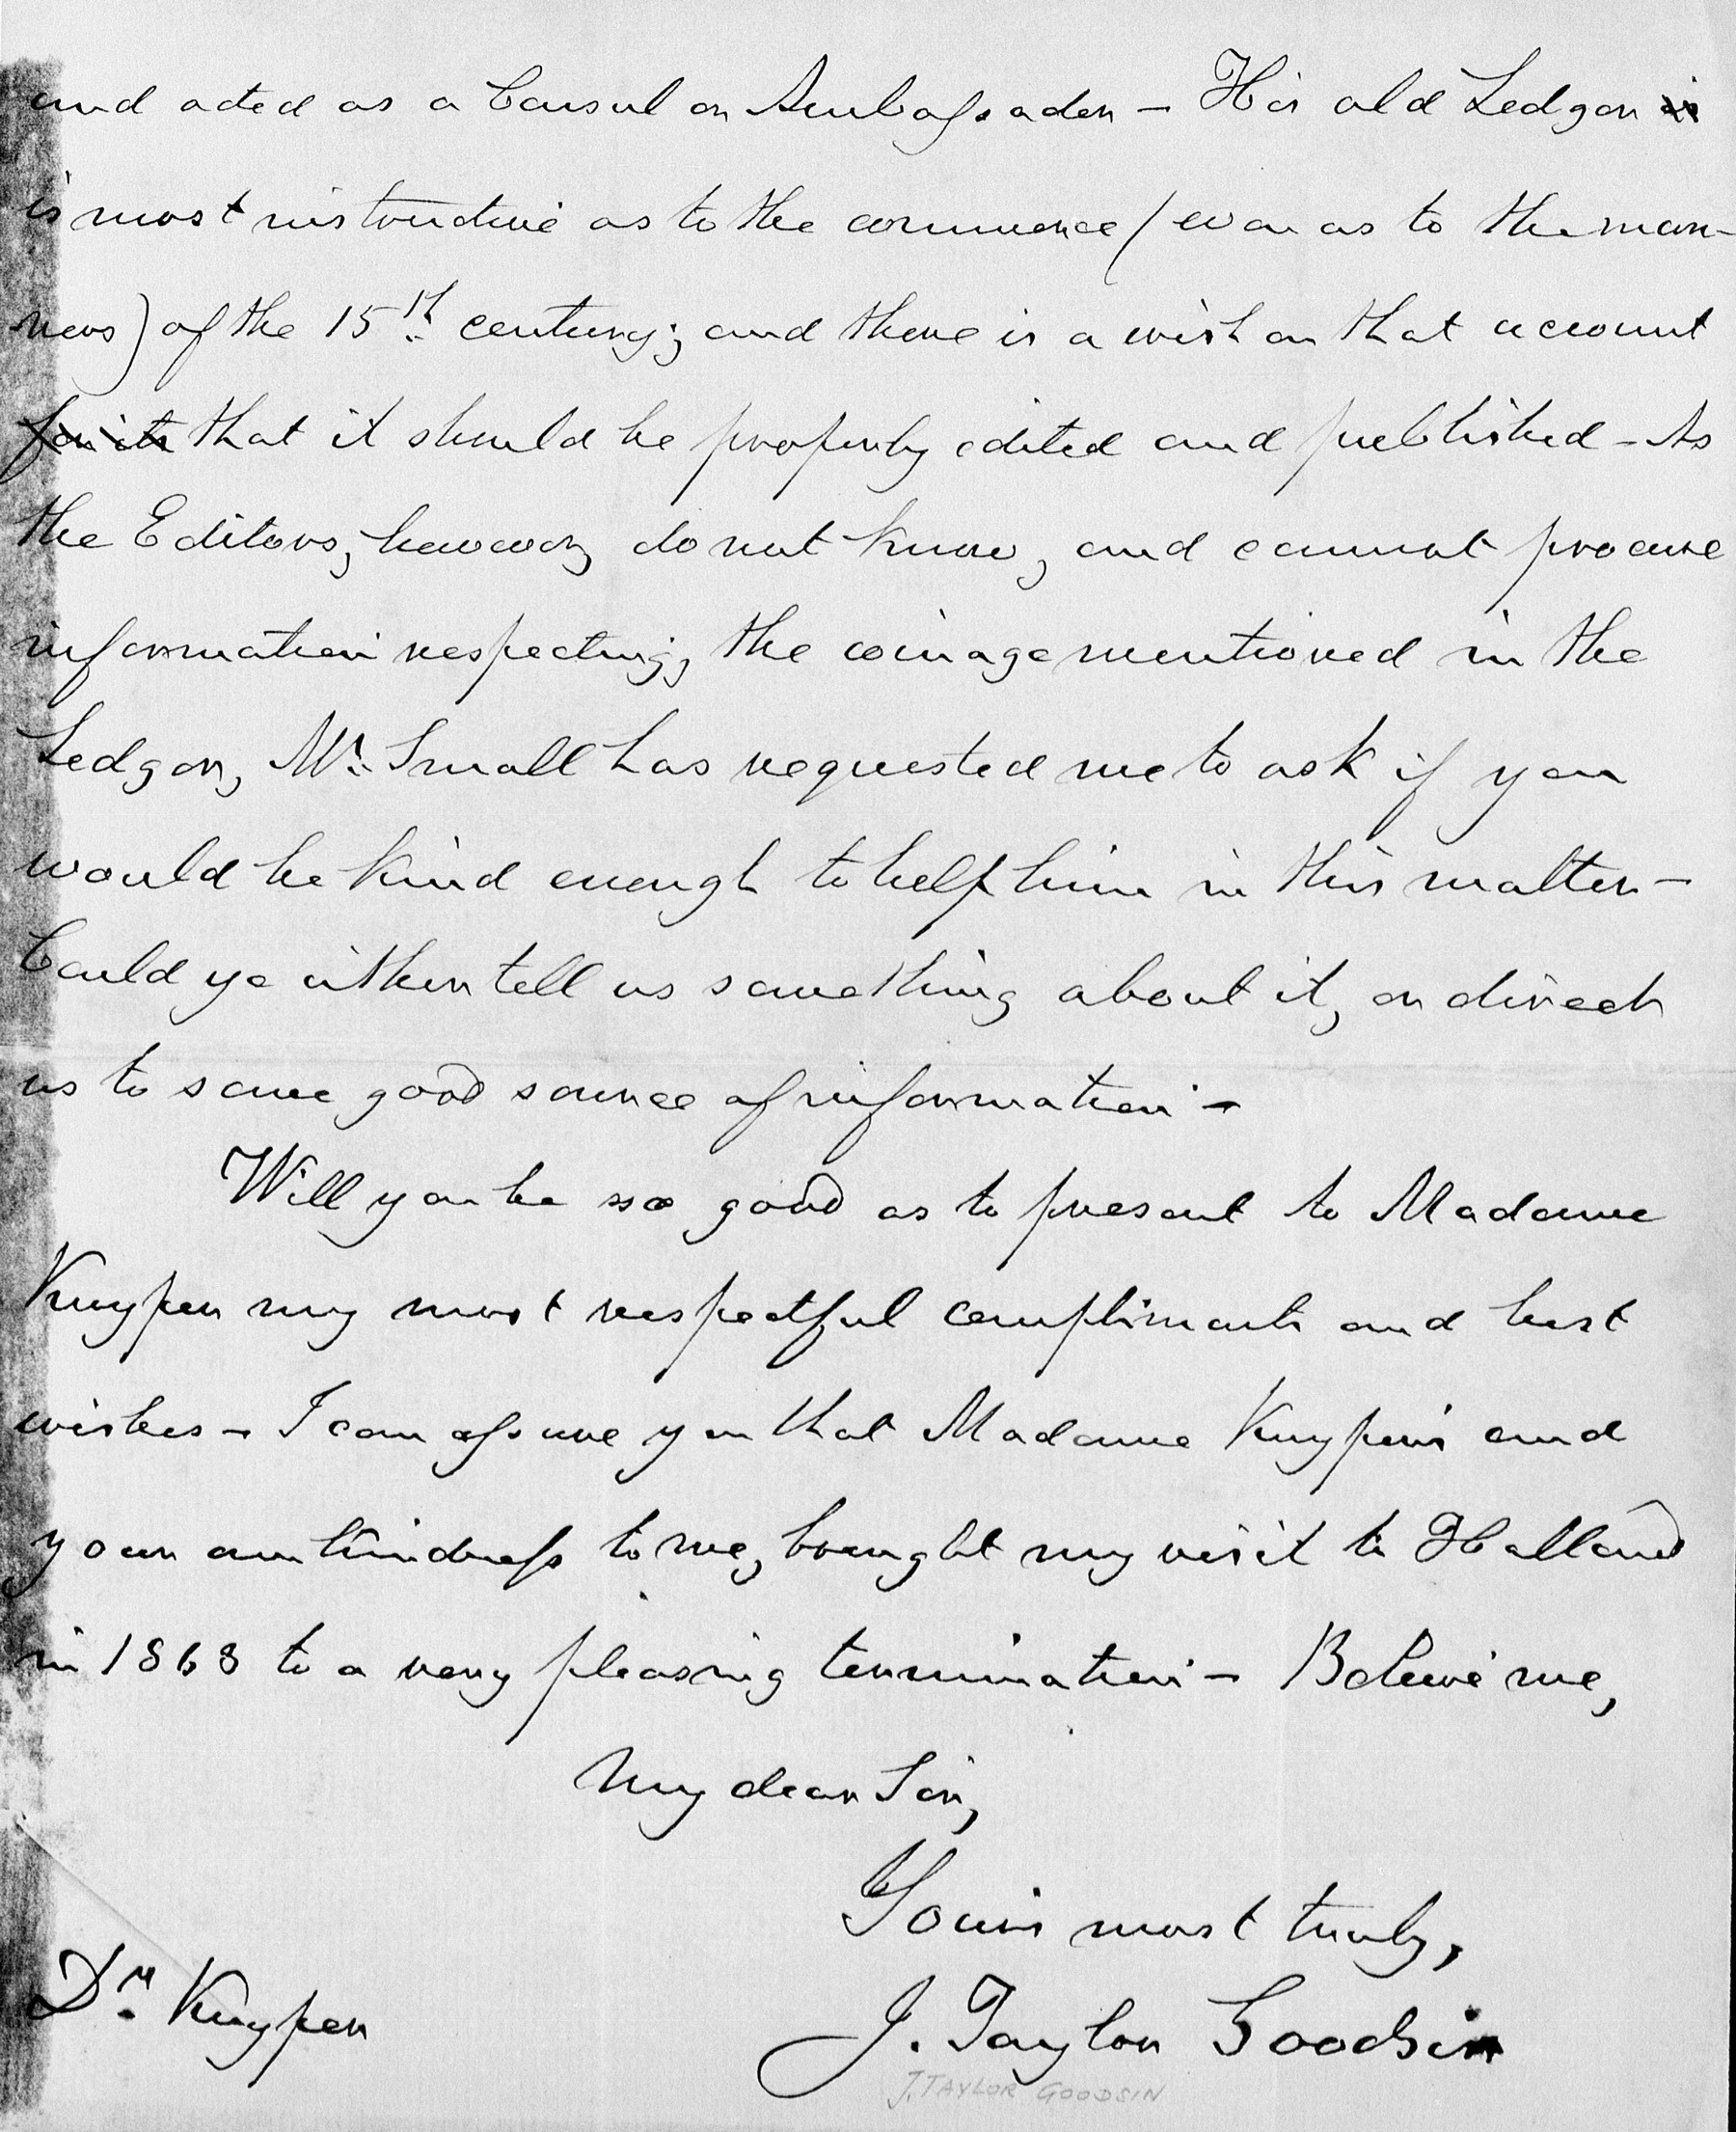 and acted as a Consul or Ambassador – His old Ledger is
is most instructive as to the commerce (even as to the man-
ners) of the 15th century; and there is a wish on that account
for its that it should be properly edited and published – As
the Editors, however, do not know, and cannot procure
information respecting, the coinage mentioned in the
Ledger, Mr. Small has requested me to ask if you
would be kind enough to help him in this matter –
Could ye either tell us something about it, or direct
us to some good source of information –
Will you be so good as to present to Madame
Kuyper my most respectful compliments and best
wishes – I can assure you that Madame Kuyper's and
your own kindness to me, brought my visit to Holland
in 1868 to a very pleasing termination – Believe me,
My dear Sir,
Yours most truly,
Dr. Kuyper
J. Taylor Goodsir
J. TAYLOR GOODSIN